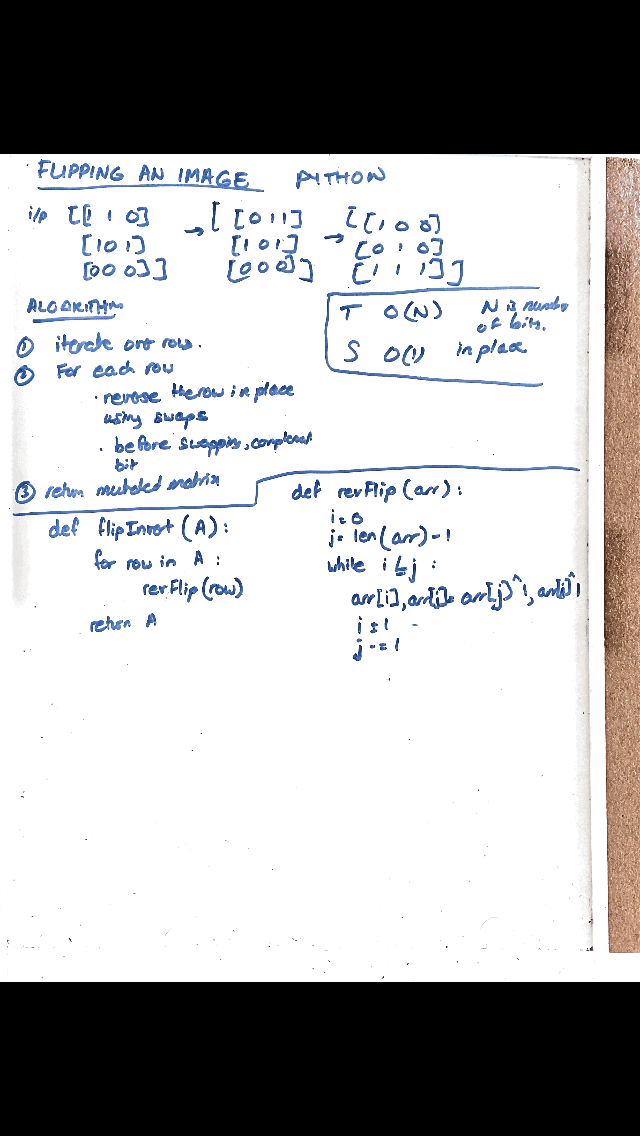 FLIPPING AN IMAGE PYTHON
i/p [[1 1 0] → [[0 1 1] → [[1 0 0]
[1 0 1] [1 0 1] [0 1 0]
[0 0 0]] [0 0 0]] [1 1 1]]
ALGORITHM
① iterate over row.
② For each row
· reverse the row in place
using swaps
· before swapping, complement
bit
③ return mutated matrix
T O(N) N is number
of bits.
S O(1) in place
def flipInvert(A):
for row in A :
revFlip(row)
return A
def revFlip(arr):
i=0
j=len(arr)-1
while i <= j :
arr[i], arr[j]= arr[j]^1, arr[i]^1
i = 1
j -= 1